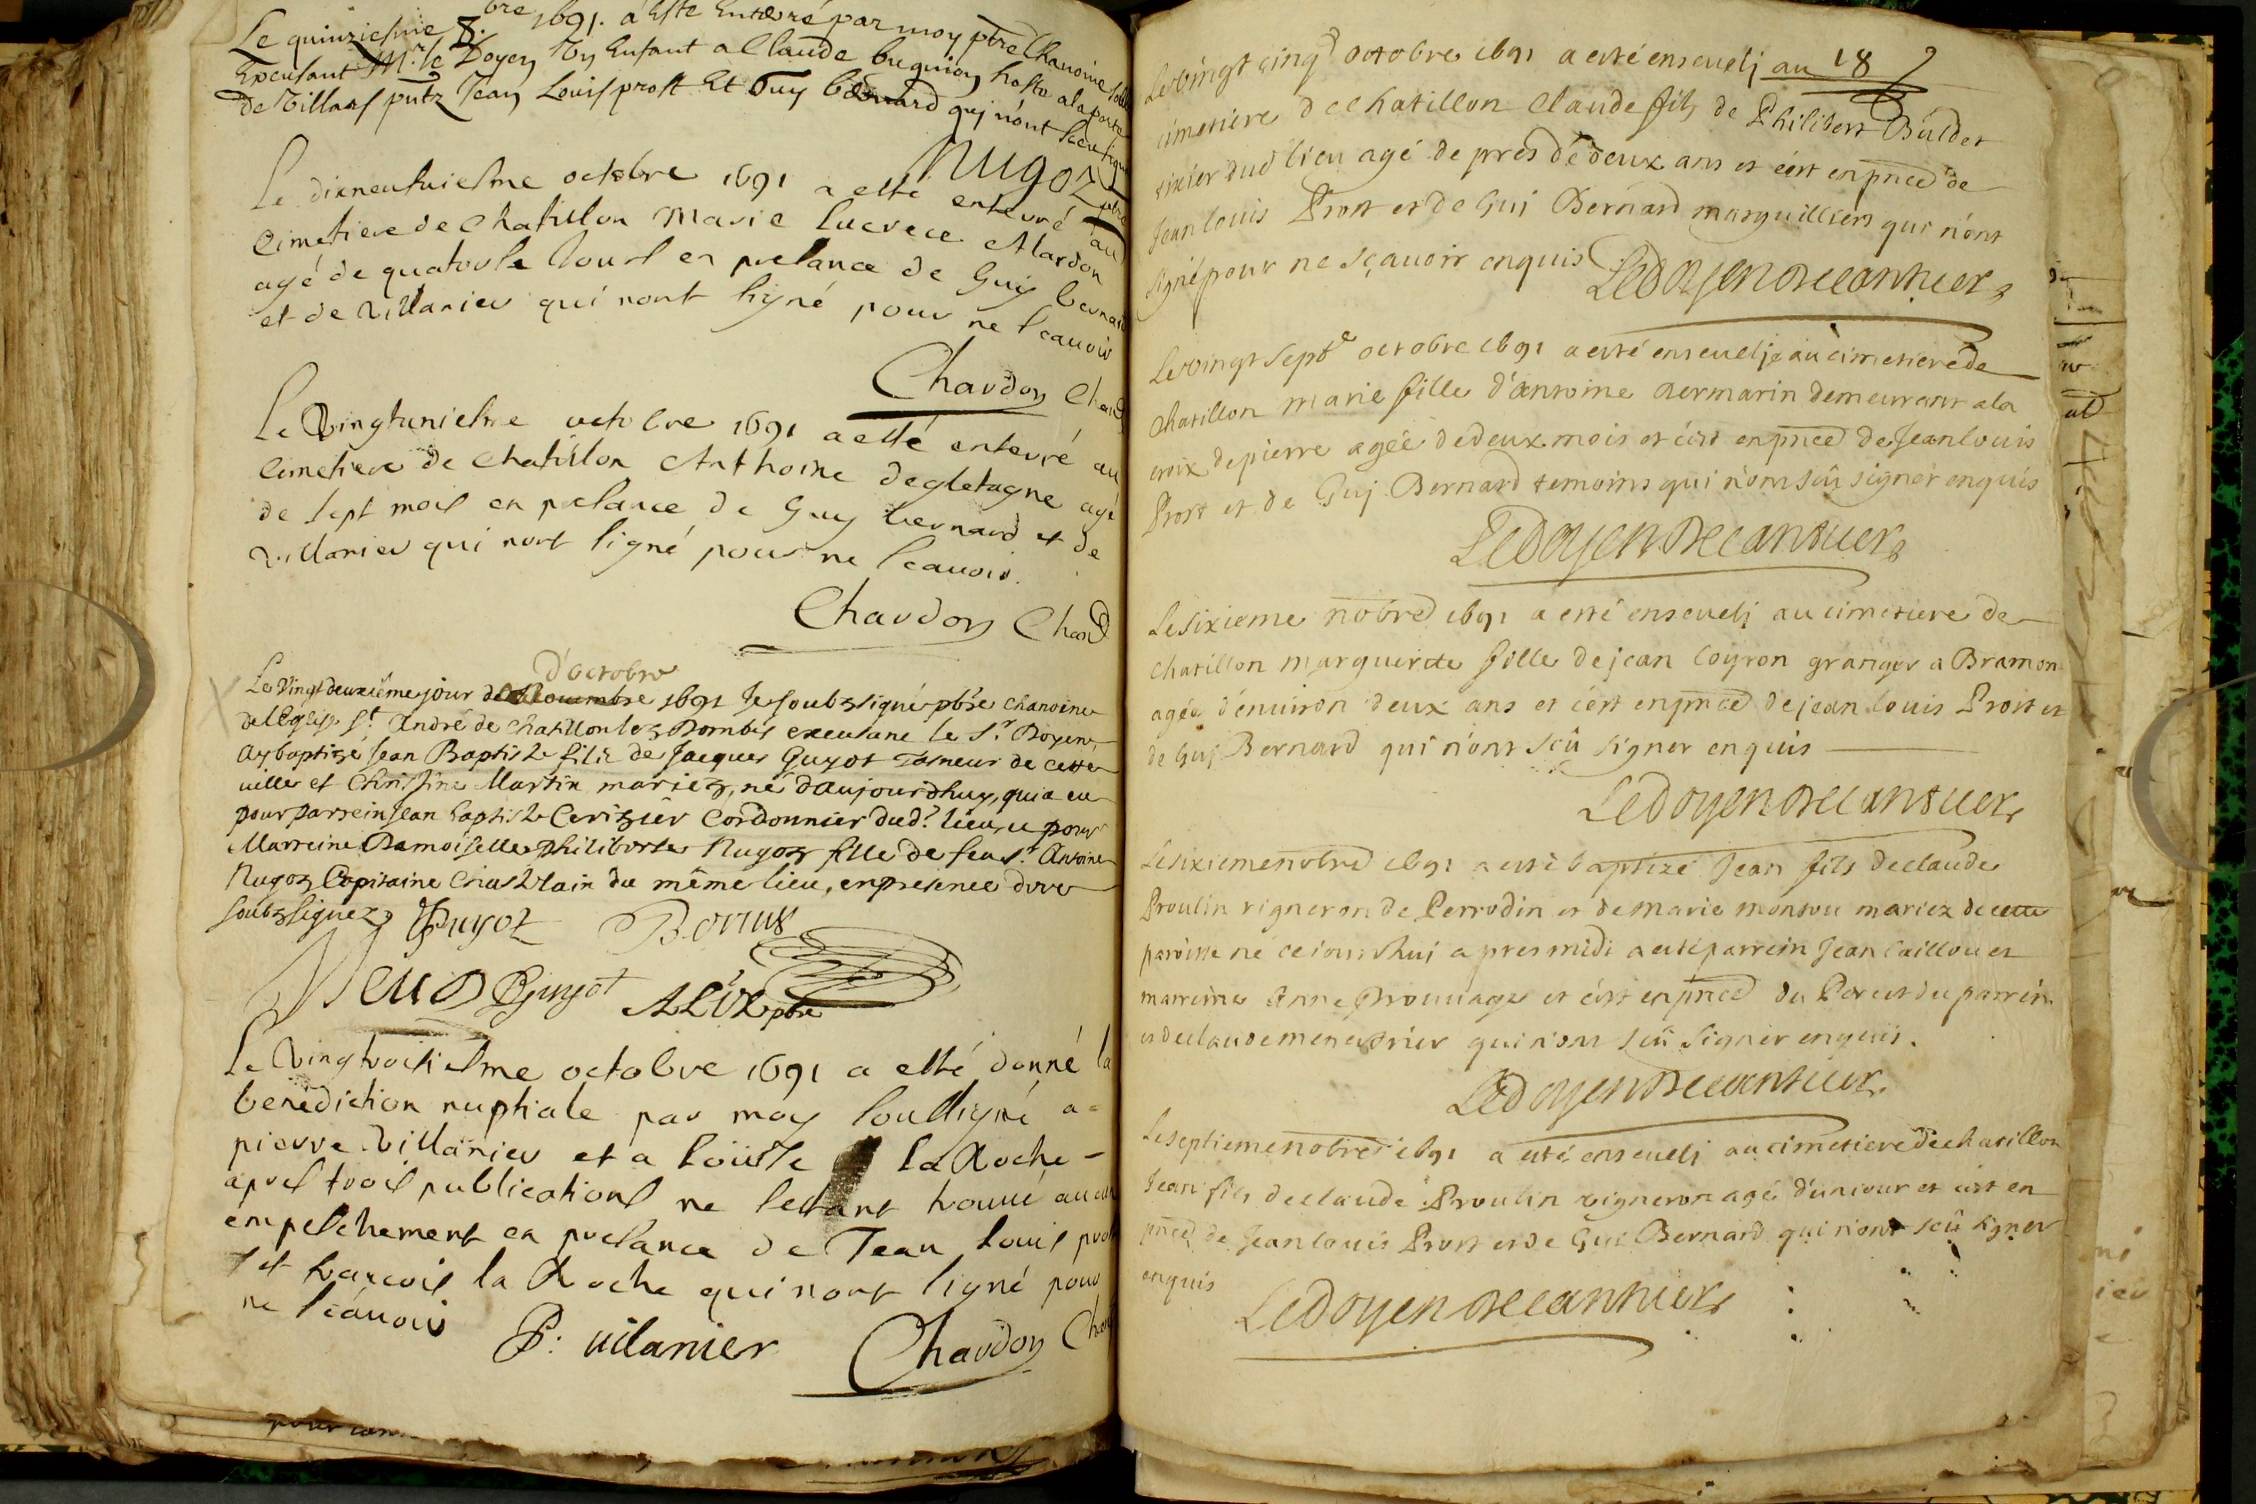 Le quinziesme 8.bre 1691. a esté enterré par moy ptre Chanoine
Excusant Mr. le Doyen un Enfant a Claude buguion hoste a la porte
de Villars pntz Jean Louis prost Et Guy bernard qui n'ont sceu signer
Nugoz ptre
Le dixneufuiesme octobre 1691 a esté enterré au
Cimetiere de Chatillon Marie lucrece Mardon
agé de quatorse Jours en presance de Guy bernard
et de Villanier qui n'ont signé pour ne scauoir
Chardon Chan
Le Vingtuniesme octobre 1691 a esté enterré au
Cimetiere de Chatillon Anthoine degletagne agé
de sept mois en presance de Guy bernard et de
villanier qui n'ont signé pour ne scauoir.
Chardon Chan
d'octobre
Le Vingt deuxiéme jour de Nouembre 1691 Je soubzsigné ptre chanoine
de l'Eglise St. André de Chatillon lez Dombes excusant le Sr. Doyen,
ay baptizé Jean Baptiste filz de Jacques Guyot Taneur de cette
ville et Christine Martin mariez, né d'aujourdhuy, qui a eu
pour parrein Jean baptiste Cerizier Cordonnier dud. lieu, et pour
Marreine Damoiselle Philiberte Nugoz fille de feu Sr. Antoine
Nugoz Capitaine Chastelain du même lieu, en presence des
soubzsignez Guyot
Guyot ptre
Le Vingtroisiesme octobre 1691 a esté donné la
benediction nuptiale par moy soussigné a
pierre Villanier et a Loüise la Roche
apres trois publications ne sestant trouué aucun
empeschement en presance de Jean Louis prost
et francois la Roche qui n'ont signé pour
ne scauoir
P: uilanier Chardon Chan
pour
18
Le vingt cinqe octobre 1691 a esté enseuelj au
cimetiere de Chatillon Claude fils de Philibert Buldet
tixier dud lieu agé de pres de deux ans et c'est en pnce de
Jean louis Prost et de Guj Bernard marguilliers qui n'ont
signé pour ne sçauoir enquis
Le doyen Decantuer
Le vingt septe octobre 1691 a esté enseuelje au cimetiere de
Chatillon marie fille d'antoine aermarin demeurant a la
croix de pierre agée de deux mois et c'est en pnce de Jean louis
Prost et de Guj Bernard temoins qui n'ont sçû signer enquis
Le doyen Decantuer
Le sixieme nobre 1691 a esté enseuelj au cimetiere de
chatillon marguerite fille de jean loyron granger a Bramon
agée d'enuiron deux ans et c'est en pnce de jean louis Prost et
de Guj Bernard qui n'ont sçû signer enquis
Le doyen Decantuer
Le sixieme nobre 1691 a esté baptizé Jean fils de claude
Proulin vigneron de Perrodin et de marie monsou mariez de cette
paroisse né ce jourdhuj apres midi a esté parrein Jean Caillou et
marreine Anne Brouuage et c'est en pnce du Pere et du parrein
et de claude menestrier qui n'ont sçû signer enquis.
Le doyen Decantuer
Le septieme nobre 1691 a esté enseuelj au cimetiere de chatillon
Jean fils de claude Proulin vigneron agé d'un jour et c'est en
pnce de Jean louis Prost et de Gui Bernard qui n'ont sçû signer
enquis
Le doyen Decantuer